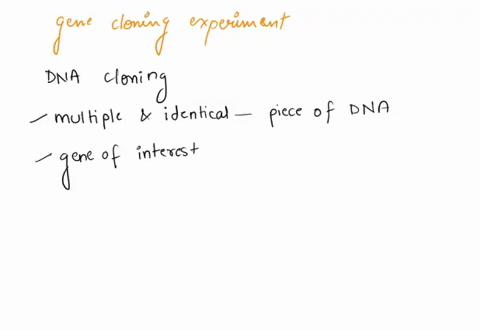 gene cloning experiment
DNA cloning
- multiple & identical - piece of DNA
- gene of interest